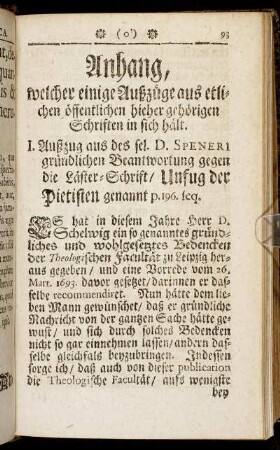 (o)
93
Anhang,
welcher einige Außzüge aus etli-
chen öffentlichen hieher gehörigen
Schrifften in sich hält.
I. Außzug aus des sel. D. SPENERI
gründlichen Beantwortung gegen
die Läster-Schrift/ Unfug der
Pietisten genannt p. 196. seq.
ES hat in diesem Jahre Herr D.
Schelwig ein so genanntes gründ-
liches und wohlgesetztes Bedencken
der Theologischen Facultät zu Leipzig her-
aus gegeben/ und eine Vorrede vom 26.
Mart. 1693. davor gesetzet/ darinnen er das-
selbe recommendiret. Nun hätte dem lie-
ben Mann gewünschet/ daß er gründliche
Nachricht von der gantzen Sache hätte ge-
wust/ und sich durch solches Bedencken
nicht so gar einnehmen lassen/ andern das-
selbe gleichfals beyzubringen. Indessen
sorge ich/ daß auch von dieser publication
die Theologische Facultät/ aufs wenigste
bey